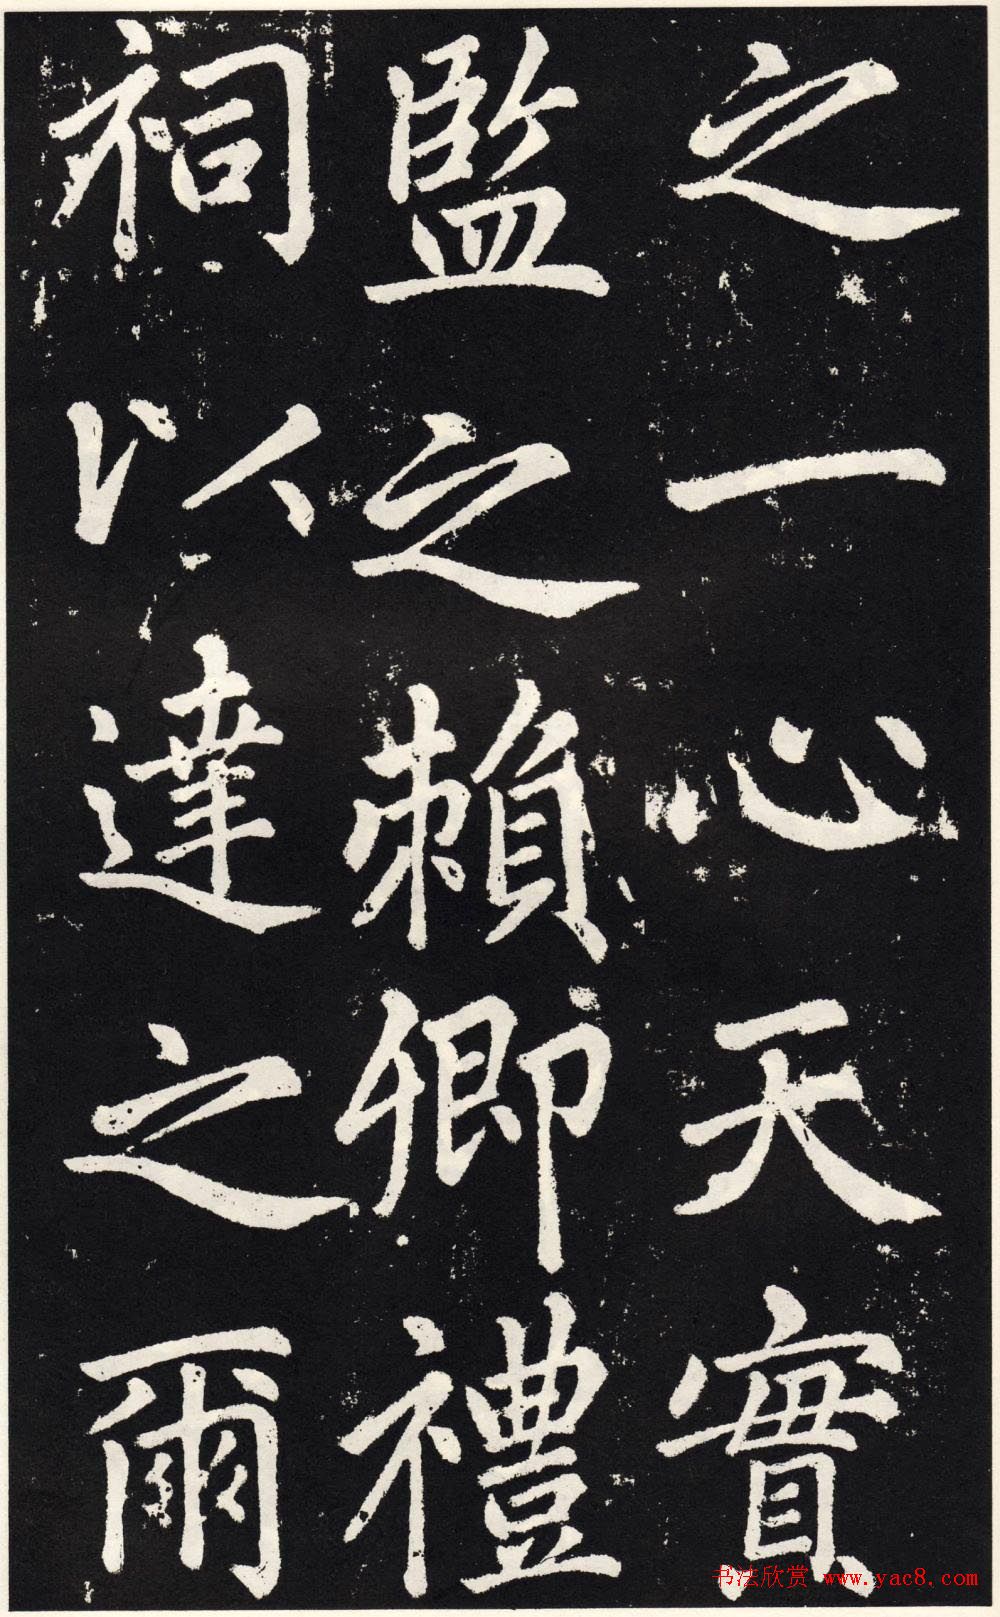 之一心天實
監之賴卿禮
祠以達之爾
书法欣赏 www.yac8.com